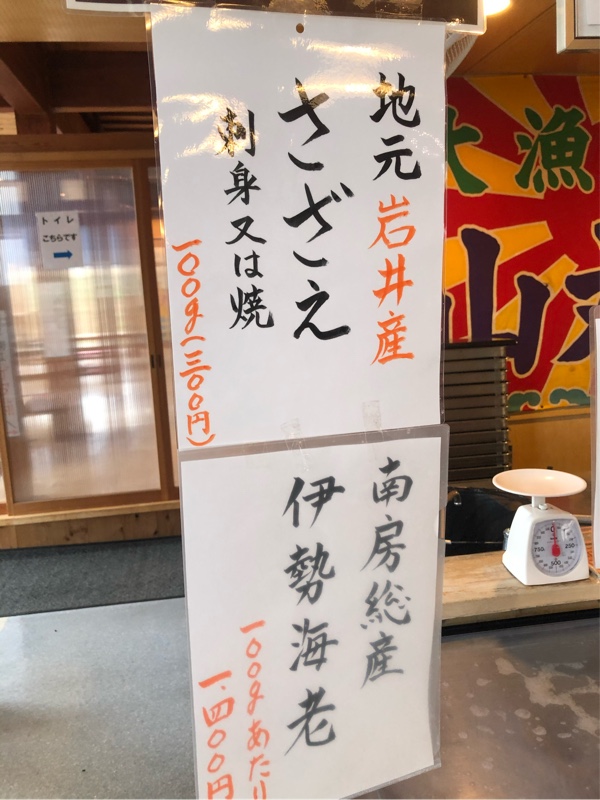 地元岩井産
さざえ
刺身又は焼
一〇〇g(三〇〇円)
南房総産
伊勢海老
一〇〇gあたり
一、四〇〇円
トイレ
こちらです
大漁
山
750
250
500